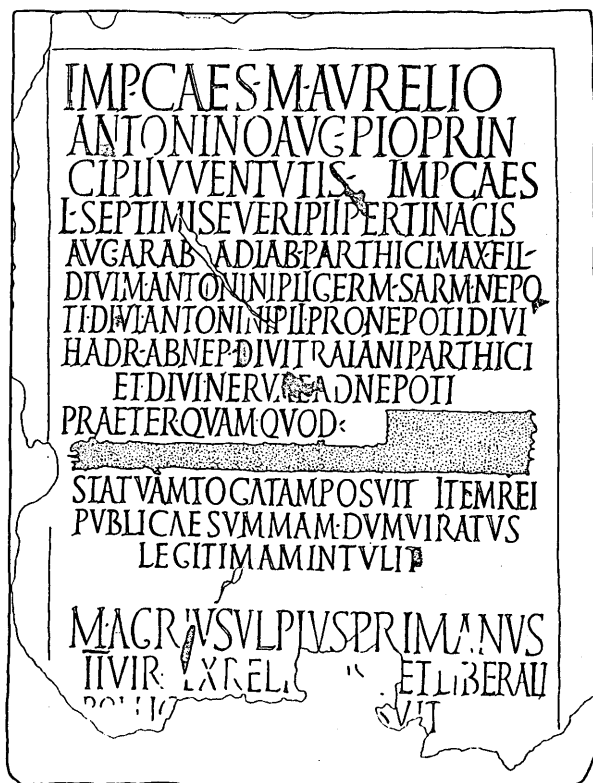 IMP·CAES·M·AVRELIO
ANTONINOAVG·PIOPRIN
CIPIIVVENTVTIS· IMPCAES
L·SEPTIMISEVERIPIIPERTINACIS
AVG·ARAB ADIAB·PARTHICI·MAX·FIL·
DIVI·M·ANTONINIPII·GERM·SARM·NEPO
TI·DIVIANTONINIPII·PRONEPOTIDIVI
HADR·ABNEP·DIVITRAIANIPARTHICI
ETDIVI·NERVAE ADNEPOTI
PRAETERQVAMQVOD
STATVAMTOGATAMPOSVIT ITEMREI
PVBLICAESVMMAM·DVMVIRATVS
LEGITIMAMINTVLIT
MAGRIVSVLPIVSPRIMANVS
IIVIR EXRELI ETLIBERALI
VIT